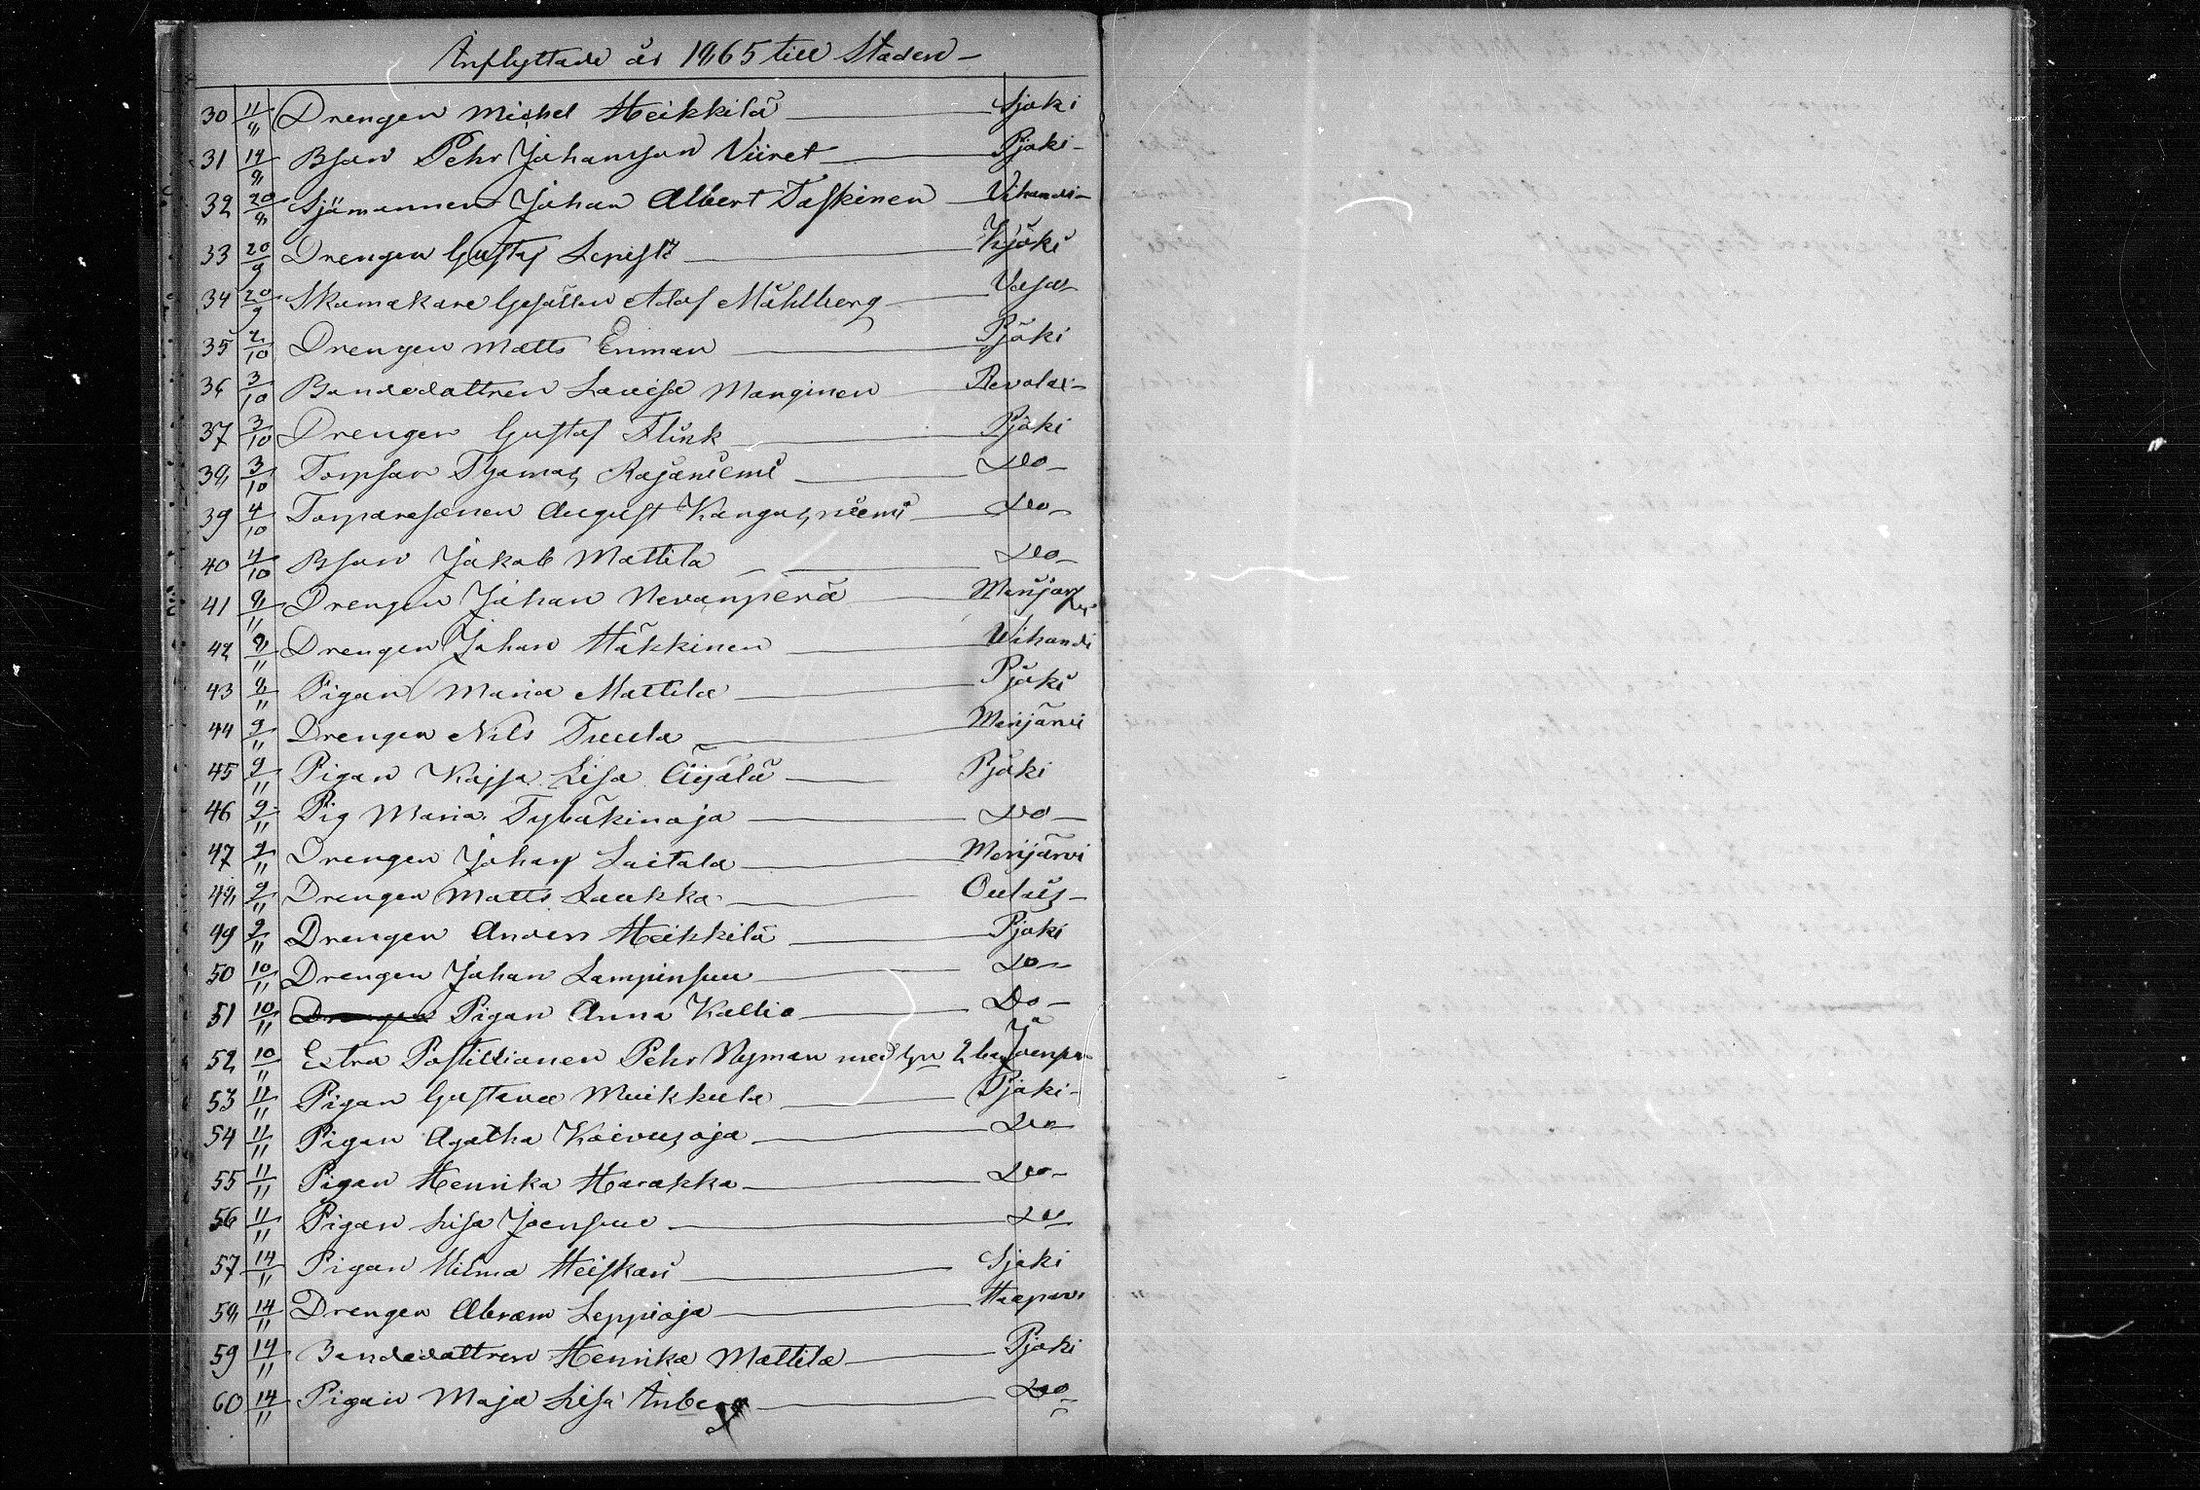 Inflyttade år 1865 till Staden –
30 11/8 Drengen Michel Heikkilä Sjoki
31 14/8 Bson Pehr Johansson Viiret Pjoki –
32 20/8 Sjömannen Johan Albert Taskinen Vihandi –
33 20/9 Drengen Gustaf Lepistö Kjöki
34 20/9 Skomakare Gesällen Adolf Måhlberg Vasa –
35 2/10 Drengen Matts Enman Pjöki
36 3/10 Bondedottren Lovisa Manginen Revolax –
37 3/10 Drengen Gustaf Flink Pjöki
38 3/10 Torpson Thomas Rajaniemi Do –
39 4/10 Torparesonen August Kangasniemi Do –
40 4/10 Bson Jakob Mattila Do –
41 8/11 Drengen Johan Nevanperä Merijärvi
42 8/11 Drengen Johan Häkkinen Wihandi
43 8/11 Pigan Maria Mattila Pjoki
44 9/11 Drengen Nils Tuula Merijärvi
45 9/11 Pigan Kajsa Lisa Äijälä Pjöki
46 9/11 Pig Maria Tybäkinoja Do –
47 9/11 Drengen Johan Laitala Merijärvi
48 9/11 Drengen Matts Laukka Oulais –
49 9/11 Drengen Anders Heikkilä Pjoki
50 10/11 Drengen Johan Lampinsuu Do –
51 10/11 Drengen Pigan Anna Kallio Do –
52 10/11 Extra Postillionen Pehr Nyman med hu 2 ba
53 11/11 Pigan Gustava Muikkula Pjoki –
54 11/11 Pigan Agatha Koivusoja Do
55 11/11 Pigan Henrika Harakka Do –
56 11/11 Pigan Lisa Joensuu Do
57 14/11 Pigan Hilma Heiskari Sjoki
58 14/11 Drengen Abram Leppioja Haapavi
59 14/11 Bondedottren Henrika Mattila Pjoki
60 14/11 Pigan Maja Lisa Do